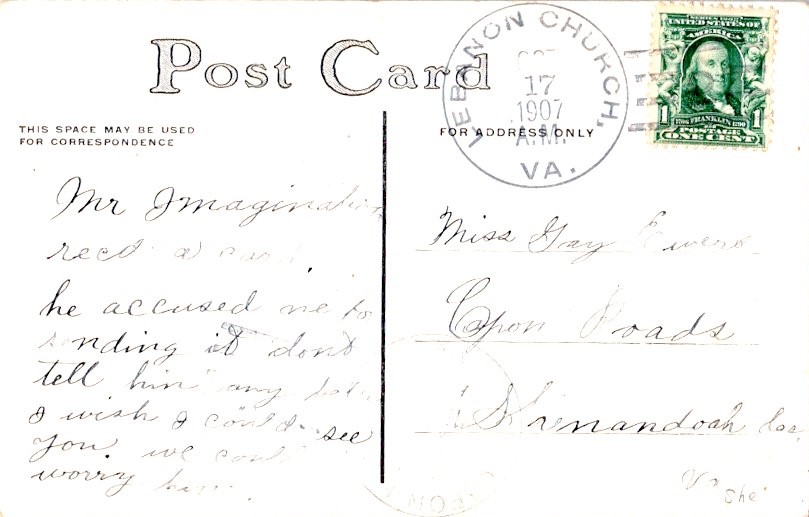 Post Card
THIS SPACE MAY BE USED
FOR CORRESPONDENCE
FOR ADDRESS ONLY
LEBANON CHURCH,
17
1907
A.M.
VA.
SERIES 1902
UNITED STATES OF
AMERICA
1706 FRANKLIN 1790
1 POSTAGE 1
ONE CENT
Mr Imagination
recd a card
he accused me for
sending it dont
tell him any
I wish I could see
you we could
worry him
Miss Gay
Cpon Roads
Shenandoah Coa
Va
She